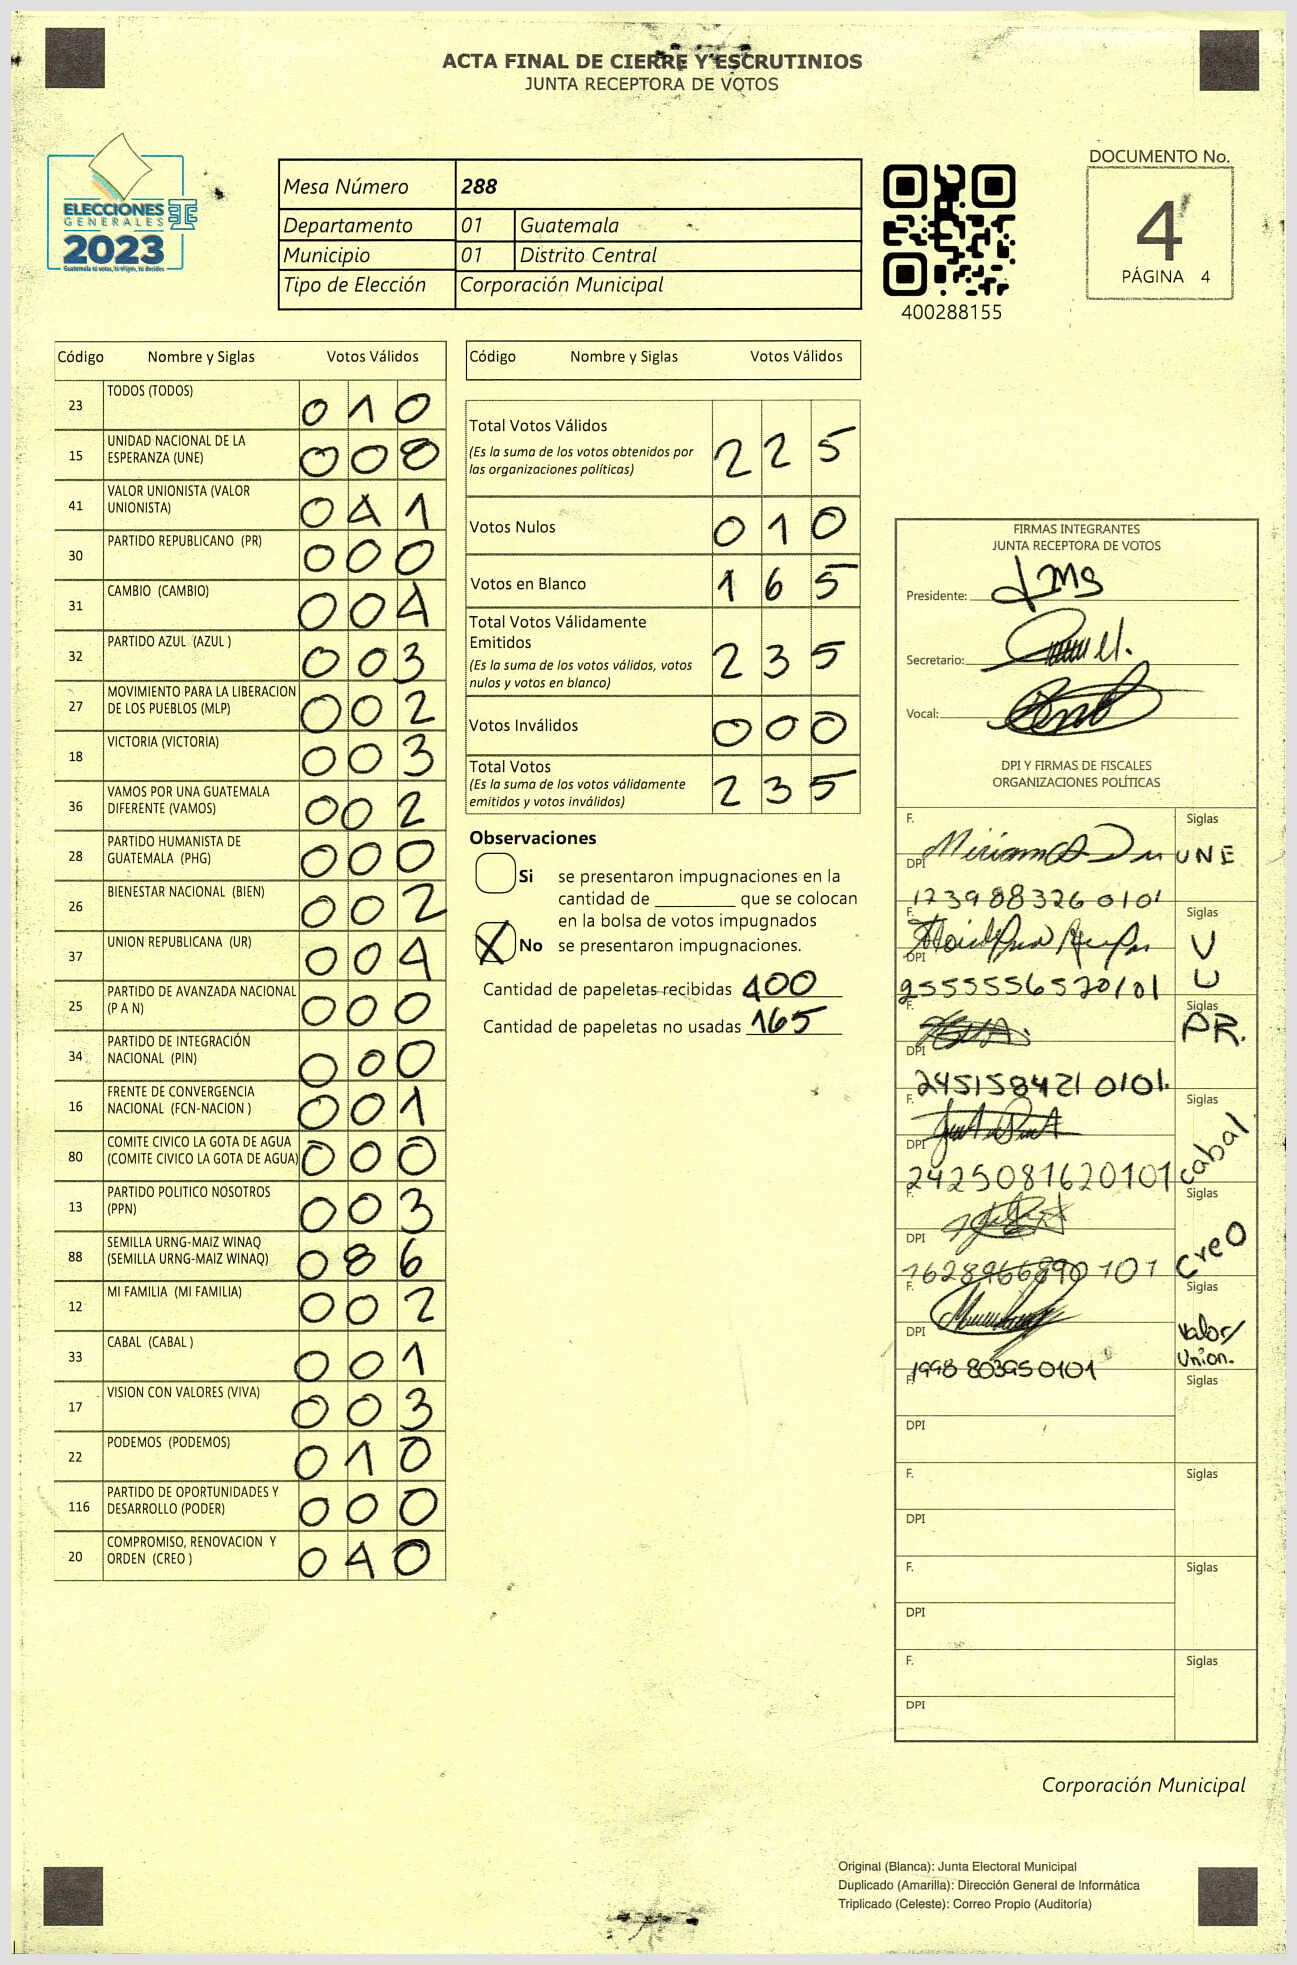 ACTA FINAL DE CIERRE Y ESCRUTINIOS
JUNTA RECEPTORA DE VOTOS
ELECCIONES
GENERALES
2023
Guatemala tú votas, tú eliges, tú decides
Mesa Número 288
Departamento 01 Guatemala
Municipio 01 Distrito Central
Tipo de Elección Corporación Municipal
400288155
DOCUMENTO No.
4
PÁGINA 4
Código Nombre y Siglas Votos Válidos
23 TODOS (TODOS) 0 1 0
15 UNIDAD NACIONAL DE LA ESPERANZA (UNE) 0 0 8
41 VALOR UNIONISTA (VALOR UNIONISTA) 0 4 1
30 PARTIDO REPUBLICANO (PR) 0 0 0
31 CAMBIO (CAMBIO) 0 0 4
32 PARTIDO AZUL (AZUL ) 0 0 3
27 MOVIMIENTO PARA LA LIBERACION DE LOS PUEBLOS (MLP) 0 0 2
18 VICTORIA (VICTORIA) 0 0 3
36 VAMOS POR UNA GUATEMALA DIFERENTE (VAMOS) 0 0 2
28 PARTIDO HUMANISTA DE GUATEMALA (PHG) 0 0 0
26 BIENESTAR NACIONAL (BIEN) 0 0 2
37 UNION REPUBLICANA (UR) 0 0 4
25 PARTIDO DE AVANZADA NACIONAL (P A N) 0 0 0
34 PARTIDO DE INTEGRACIÓN NACIONAL (PIN) 0 0 0
16 FRENTE DE CONVERGENCIA NACIONAL (FCN-NACION ) 0 0 1
80 COMITE CIVICO LA GOTA DE AGUA (COMITE CIVICO LA GOTA DE AGUA) 0 0 0
13 PARTIDO POLITICO NOSOTROS (PPN) 0 0 3
88 SEMILLA URNG-MAIZ WINAQ (SEMILLA URNG-MAIZ WINAQ) 0 8 6
12 MI FAMILIA (MI FAMILIA) 0 0 2
33 CABAL (CABAL ) 0 0 1
17 VISION CON VALORES (VIVA) 0 0 3
22 PODEMOS (PODEMOS) 0 1 0
116 PARTIDO DE OPORTUNIDADES Y DESARROLLO (PODER) 0 0 0
20 COMPROMISO, RENOVACION Y ORDEN (CREO ) 0 4 0
Código Nombre y Siglas Votos Válidos
Total Votos Válidos 2 2 5
(Es la suma de los votos obtenidos por
las organizaciones políticas)
Votos Nulos 0 1 0
Votos en Blanco 1 6 5
Total Votos Válidamente
Emitidos 2 3 5
(Es la suma de los votos válidos, votos
nulos y votos en blanco)
Votos Inválidos 0 0 0
Total Votos 2 3 5
(Es la suma de los votos válidamente
emitidos y votos inválidos)
Observaciones
Si se presentaron impugnaciones en la
cantidad de _________ que se colocan
en la bolsa de votos impugnados
X No se presentaron impugnaciones.
Cantidad de papeletas recibidas 400
Cantidad de papeletas no usadas 165
FIRMAS INTEGRANTES
JUNTA RECEPTORA DE VOTOS
Presidente:
Secretario:
Vocal:
DPI Y FIRMAS DE FISCALES
ORGANIZACIONES POLÍTICAS
F. Siglas
DPI UNE
1739883260101
F. Siglas
DPI V
U
2555556520101
F. Siglas
DPI PR.
2451584210101
F. Siglas
DPI cabal
2425081620101
F. Siglas
DPI Creo
1628966890101
F. Siglas
DPI Valor/
Union.
1998803950101
F. Siglas
DPI
F. Siglas
DPI
F. Siglas
DPI
F. Siglas
DPI
Corporación Municipal
Original (Blanca): Junta Electoral Municipal
Duplicado (Amarilla): Dirección General de Informática
Triplicado (Celeste): Correo Propio (Auditoría)